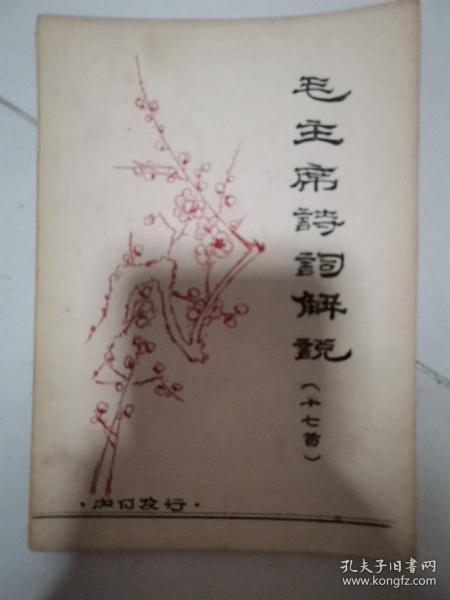 毛主席詩詞解説
(十七首)
·内部发行·
孔夫子旧书网
www.kongfz.com